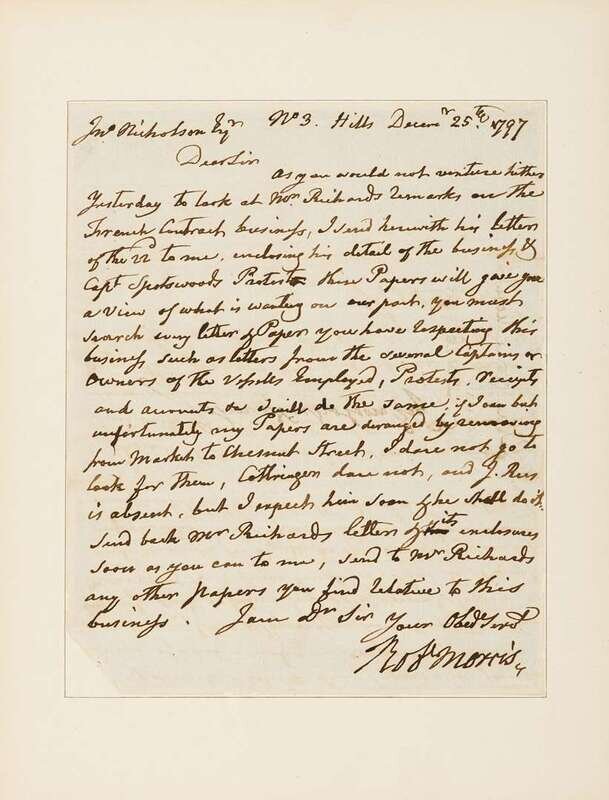 Jno Nicholson Esqr No 3. Hills Decemr 25th 1797
Dear Sir
As you would not venture hither
Yesterday to look at Mr Richards remarks on the
French Contract business, I send herewith his letters
of the 22 to me, enclosing his detail of the business &
Capt Spotswoods Protest these Papers will give you
a view of what is wanting on our part, you must
search every letter & Paper you have respecting this
business such as letters from the several Captains or
Owners of the Vessells Employed, Protests, receipts
and accounts & I will do the same if I can but
unfortunately my Papers are deranged by removing
from Market to Chesnut Street, I dare not go to
look for them, Cottringer dare not, and J. Rees
is absent, but I expect him soon & he shall do it.
Send back Mr Richards letters & its enclosures
soon as you can to me, send to Mr Richards
any other papers you find relative to this
business. I am Dr Sir Your Obed Servt
Robt Morris